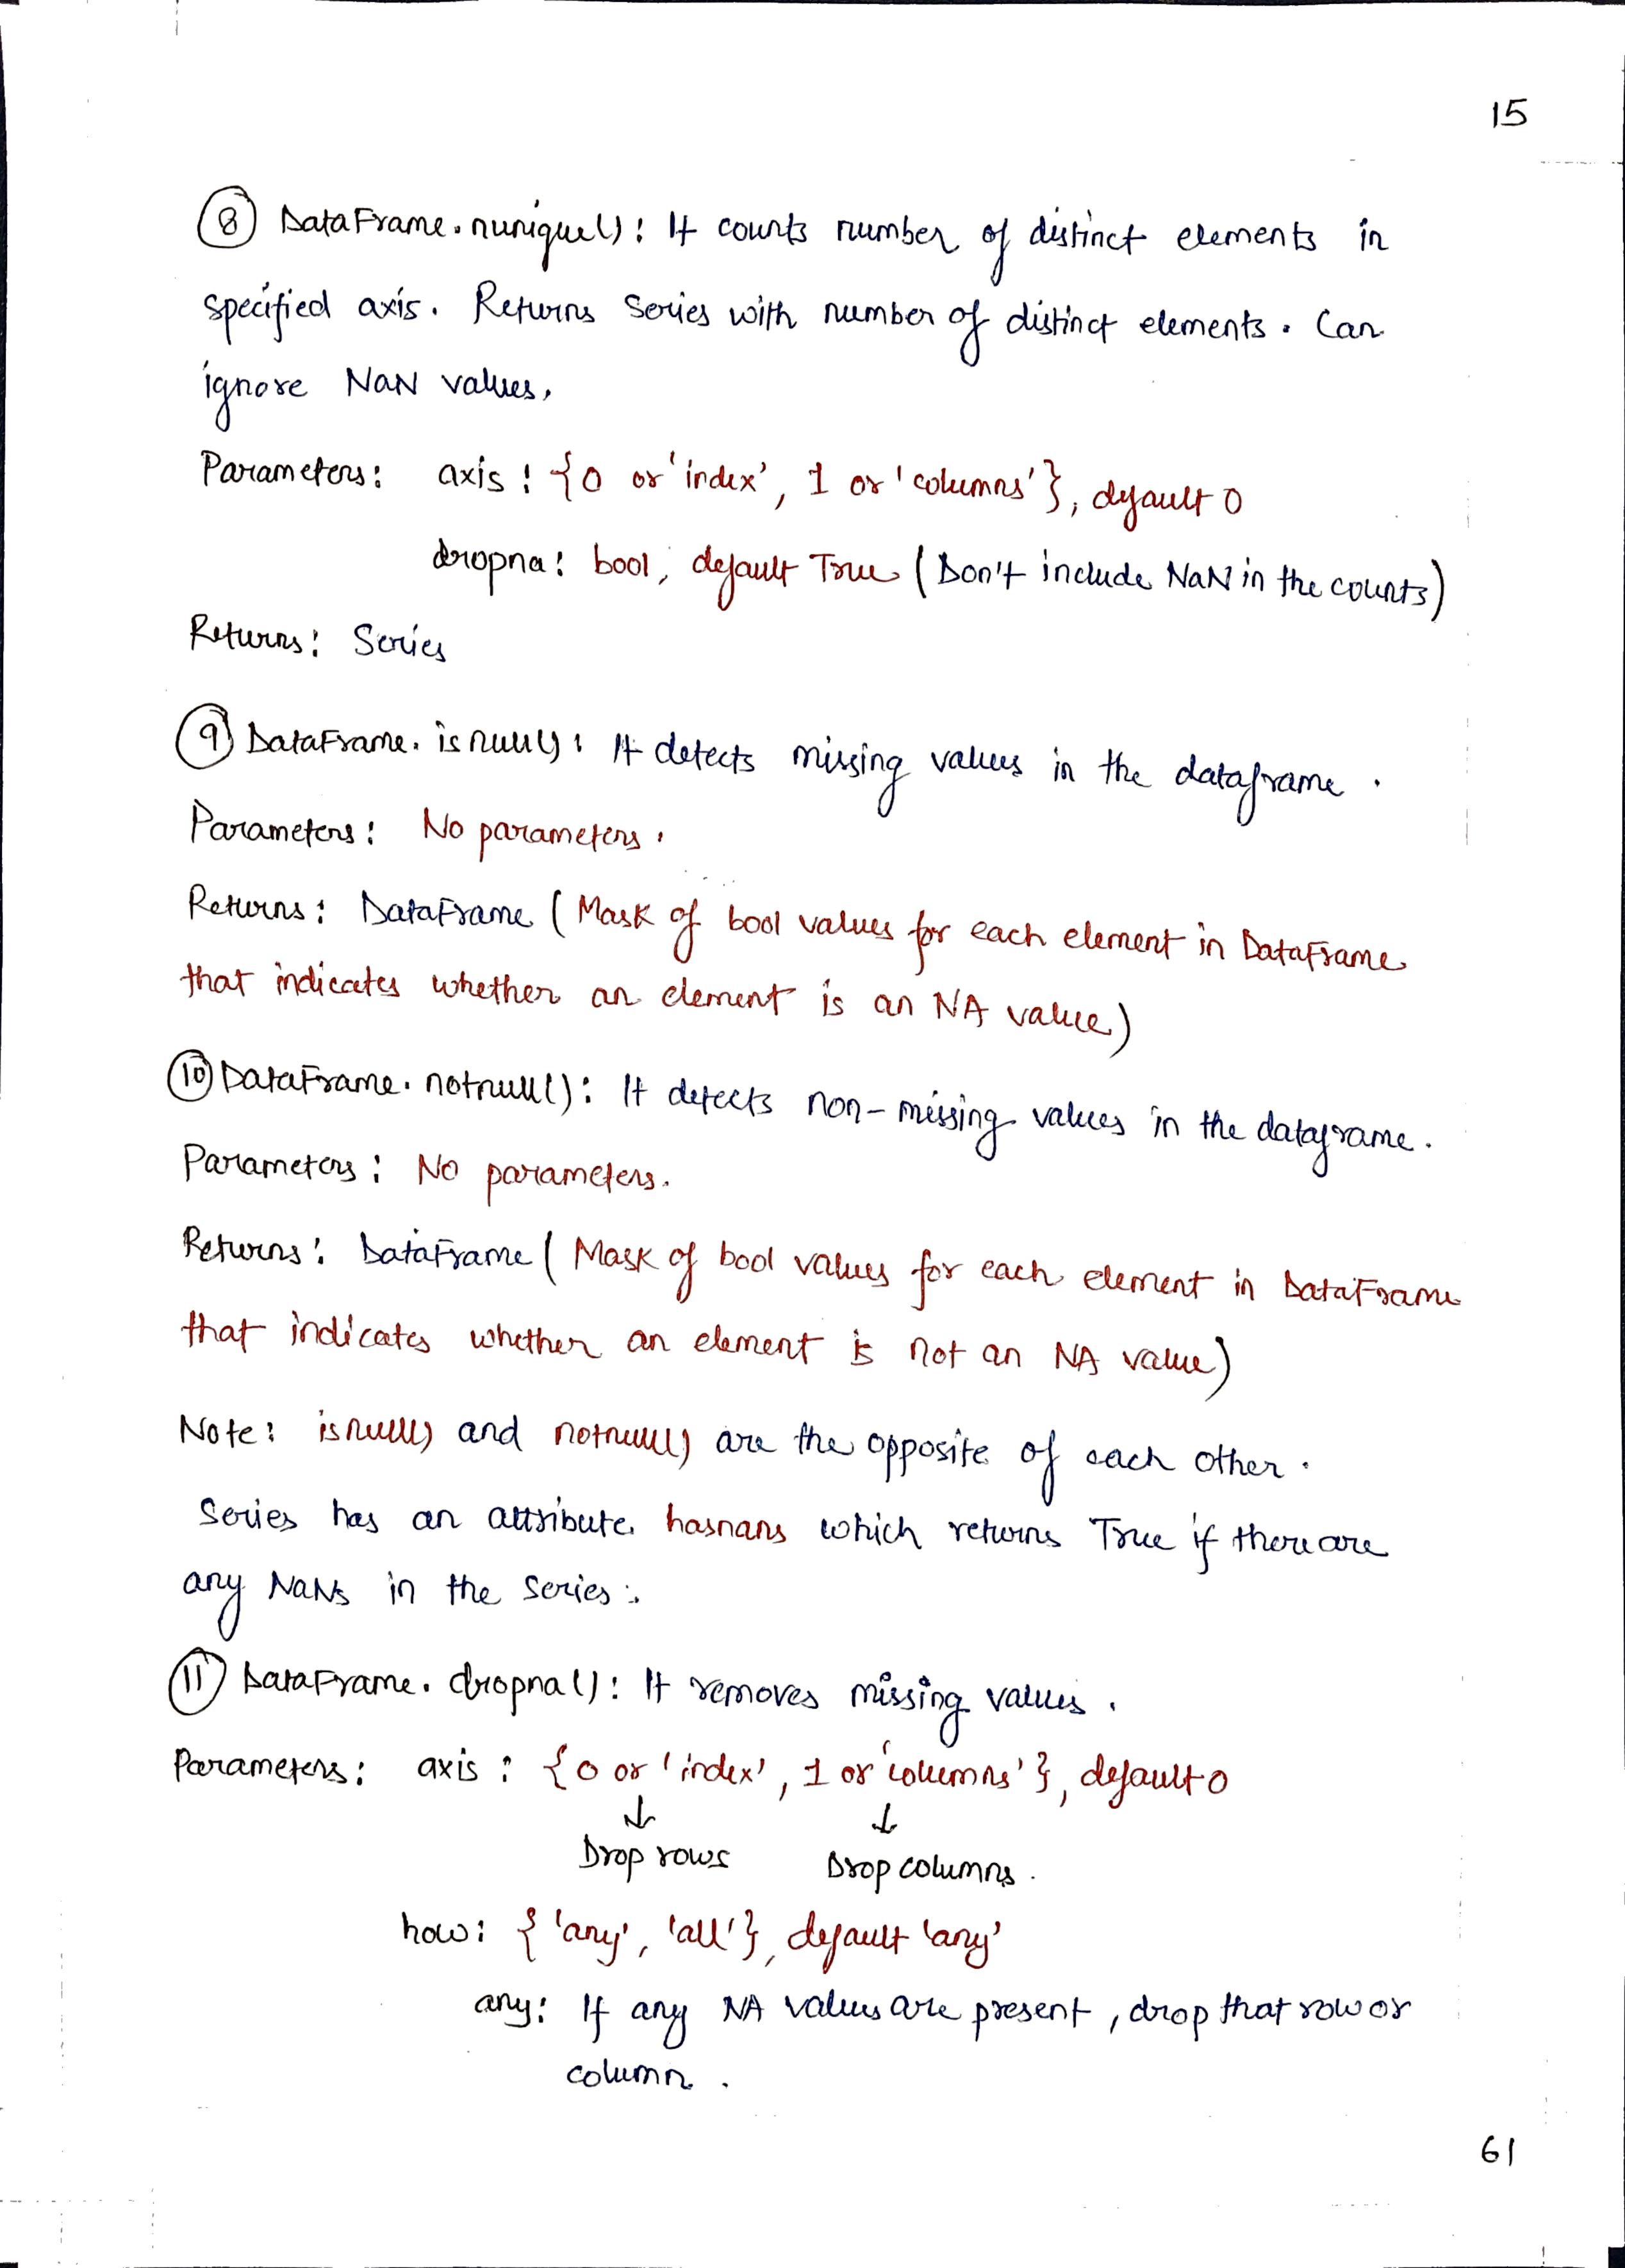 15
⑧ DataFrame.nunique(): It counts number of distinct elements in
specified axis. Returns Series with number of distinct elements. Can
ignore NaN values.
Parameters: axis: {0 or 'index', 1 or 'columns'}, default 0
dropna: bool, default True (Don't include NaN in the counts)
Returns: Series
⑨ DataFrame.isnull(): It detects missing values in the dataframe.
Parameters: No parameters.
Returns: DataFrame (Mask of bool values for each element in DataFrame
that indicates whether an element is an NA value)
⑩ DataFrame.notnull(): It detects non-missing values in the dataframe.
Parameters: No parameters.
Returns: DataFrame (Mask of bool values for each element in DataFrame
that indicates whether an element is not an NA value)
Note: isnull() and notnull() are the opposite of each other.
Series has an attribute hasnans which returns True if there are
any NaNs in the Series.
⑪ DataFrame.dropna(): It removes missing values.
Parameters: axis: {0 or 'index', 1 or 'columns'}, default 0
↓ ↓
Drop rows Drop columns.
how: {'any', 'all'}, default 'any'
any: If any NA values are present, drop that row or
column.
61